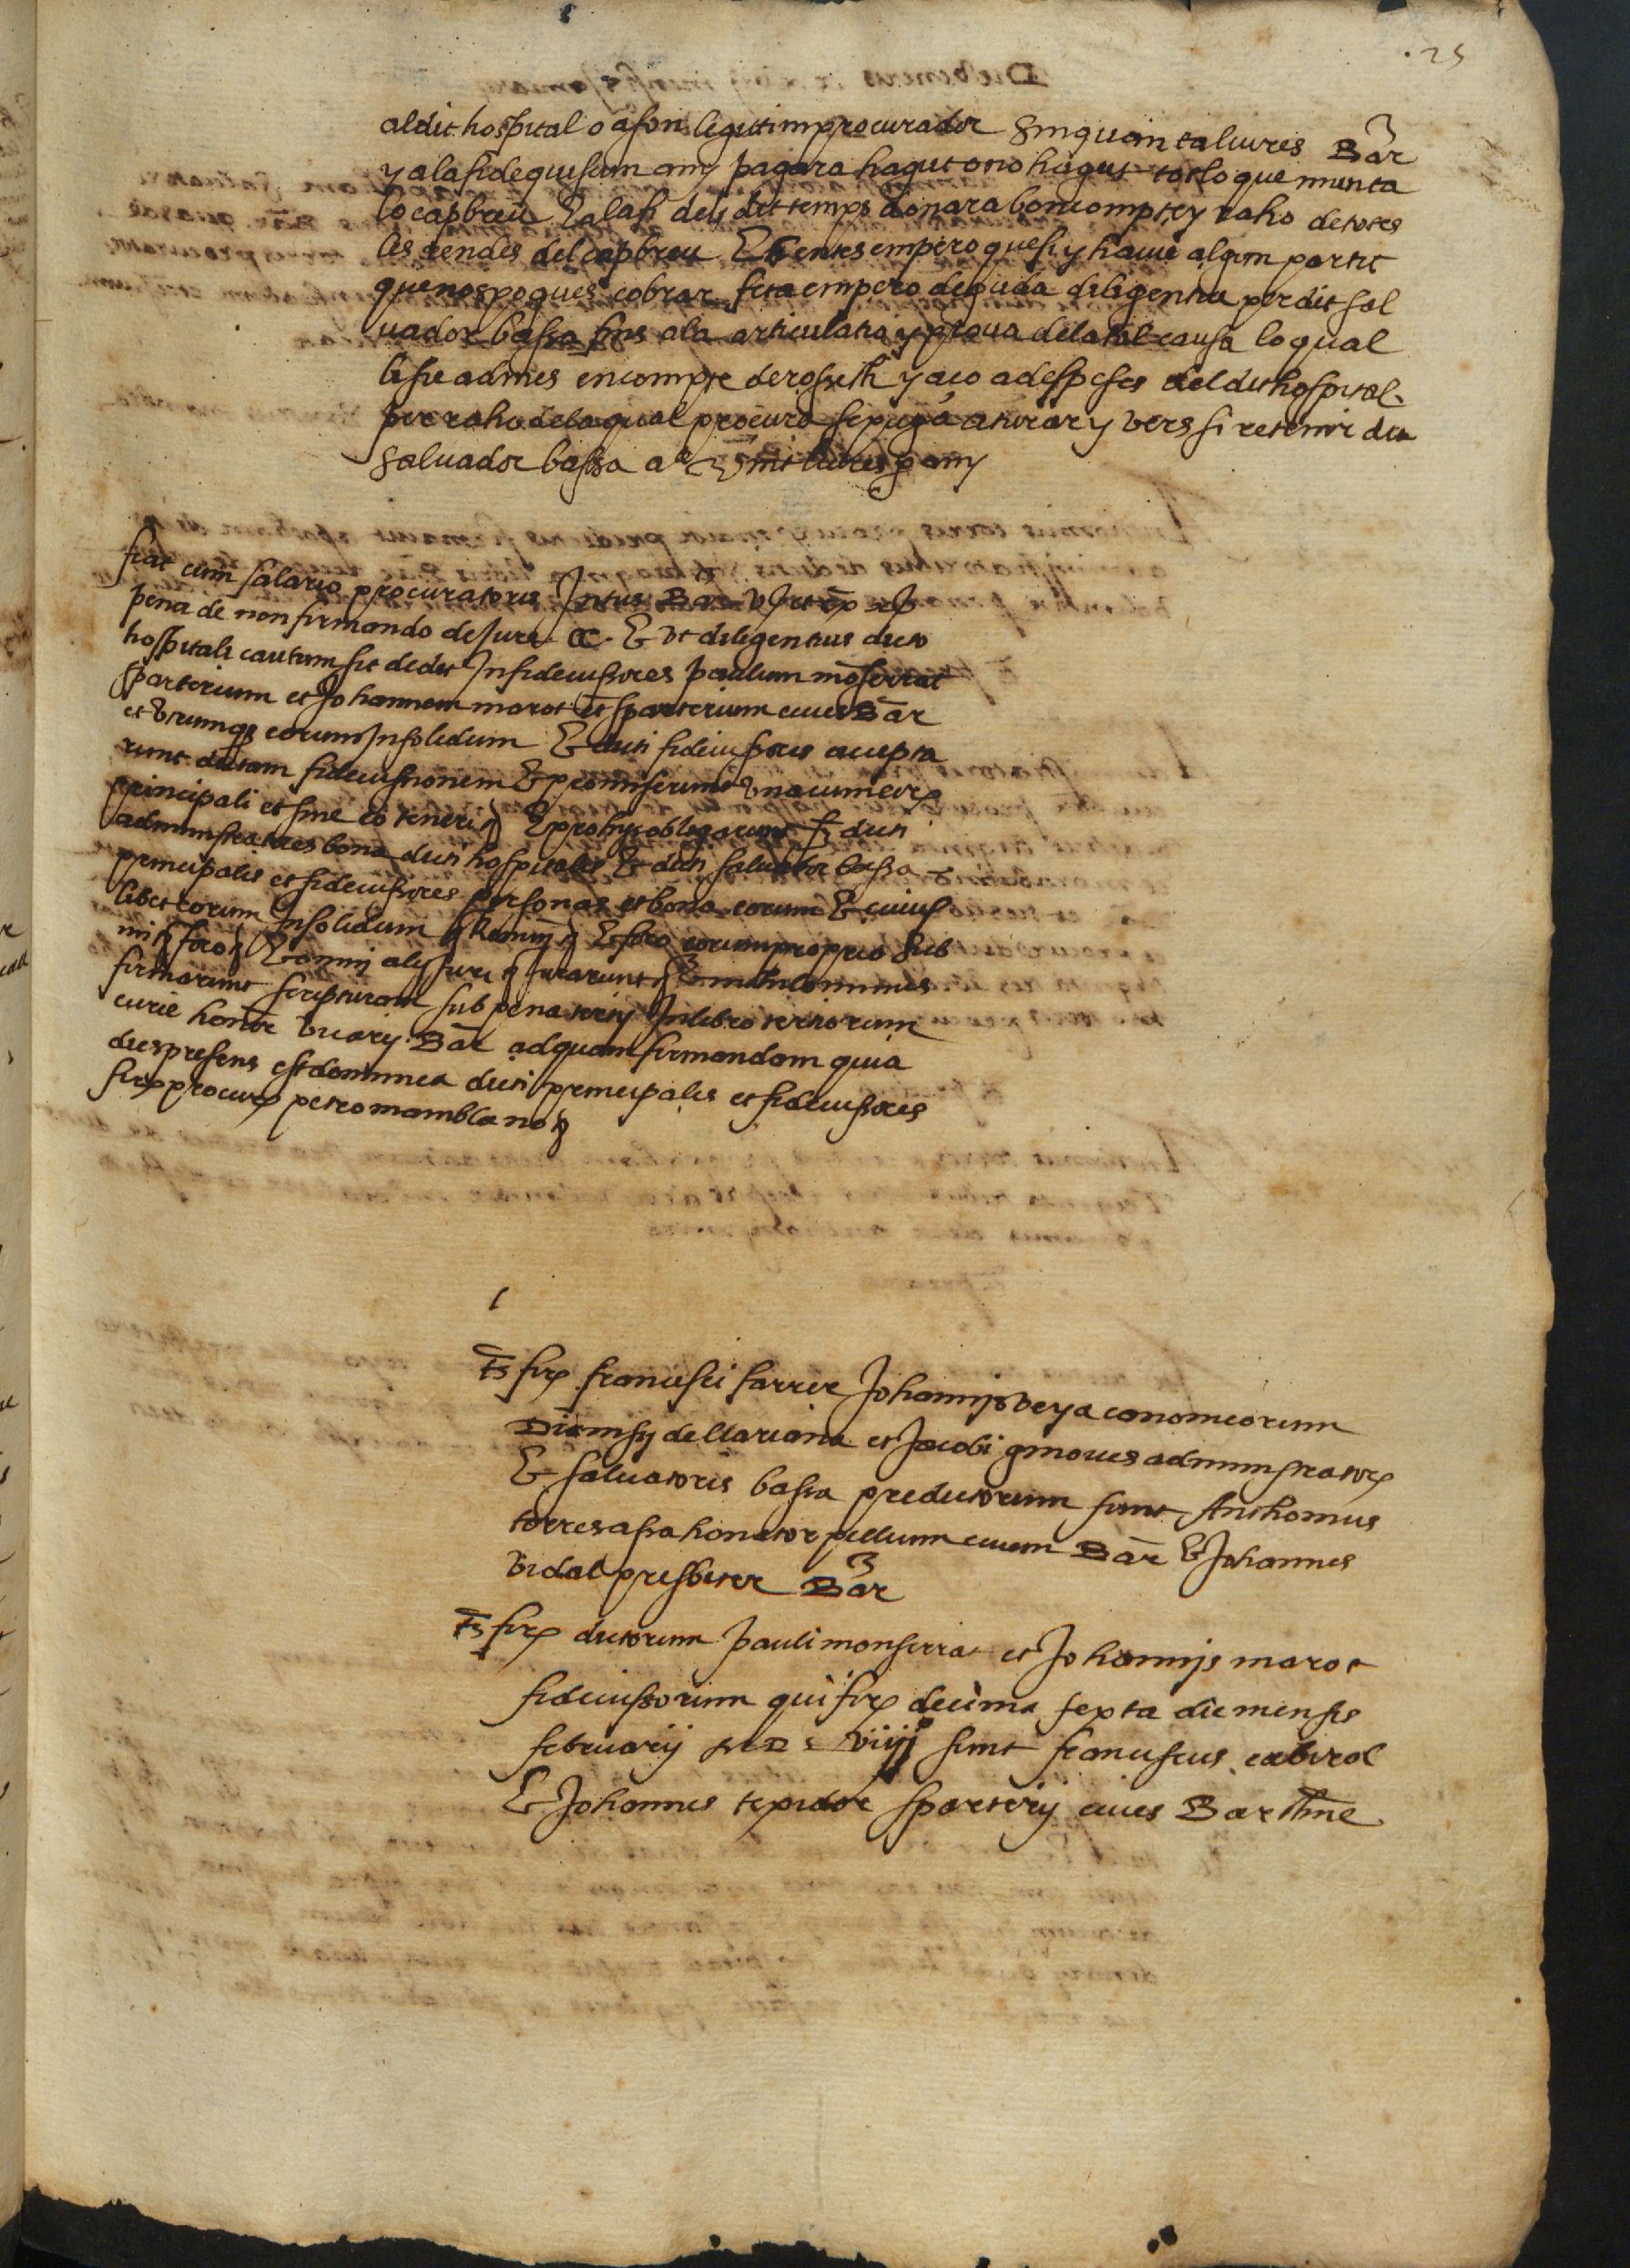 .25
al dit hospital o a son legittim procurador Sinquanta liures Bar
y a la fi de quiscun any pagara hagut o no hagut tot lo que munta
lo capbreu E a la fi del dit temps donara bon compte y raho de totes
les rendes del capbreu Entes empero que si y haura algun partit
que nos pogues cobrar feta empero deguda diligentia per dit sal
uador bassa fins a la articulatia y proua de la tal causa lo qual
li sie admes en compte de rossech y aço a despeses del dit hospital
per raho de la qual procura se puga aturar y vers si retenir dit
Saluador bassa vint liures p any
fiat cum salario procuratoris Intus Bar
pena de non firmando de Jure &c. E vt diligentius dicto
hospitali cautum sit dedit In fideiussores paulum moserrat
sparterium et Johannem marot et sparterium ciues Bar
et vtrumqs eorum Insolidum E dicti fideiussores accepta
runt dictam fideiussionem E promiserunt vna cum eorum
principali et sine eo teneri E pro hijs obligarunt dicti
administratores bona dicti hospitalis E dicti saluador bassa
principalis et fideiussores personas et bona eorum E cuius
libet eorum Insolidum Renun E foro eorum proprio Sub
mi foro E omni alij juri Jurarunt E nihilominus
firmarunt scripturam sub pena tertij In libro tertiorum
curie honor vicarij Bar ad quam firmandam quia
dies presens est dominica dicti principalis et fideiussores
fir procur petro mamblano
ts fir francisci farrer Johannis veya canonicorum
Dionisij de llariana et Jacobi ginoues administrator
E saluatoris bassa predictorum sunt Anthonius
torres assahonator pellium ciuem Bar E Johannes
vidal presbiter Bar
ts fir dictorum pauli monserrat et Johannis marot
fideiussorum qui fir decima sexta die mensis
februarij viiij sunt franciscus cabirol
E Johannes texidor sparterij ciues Barchne